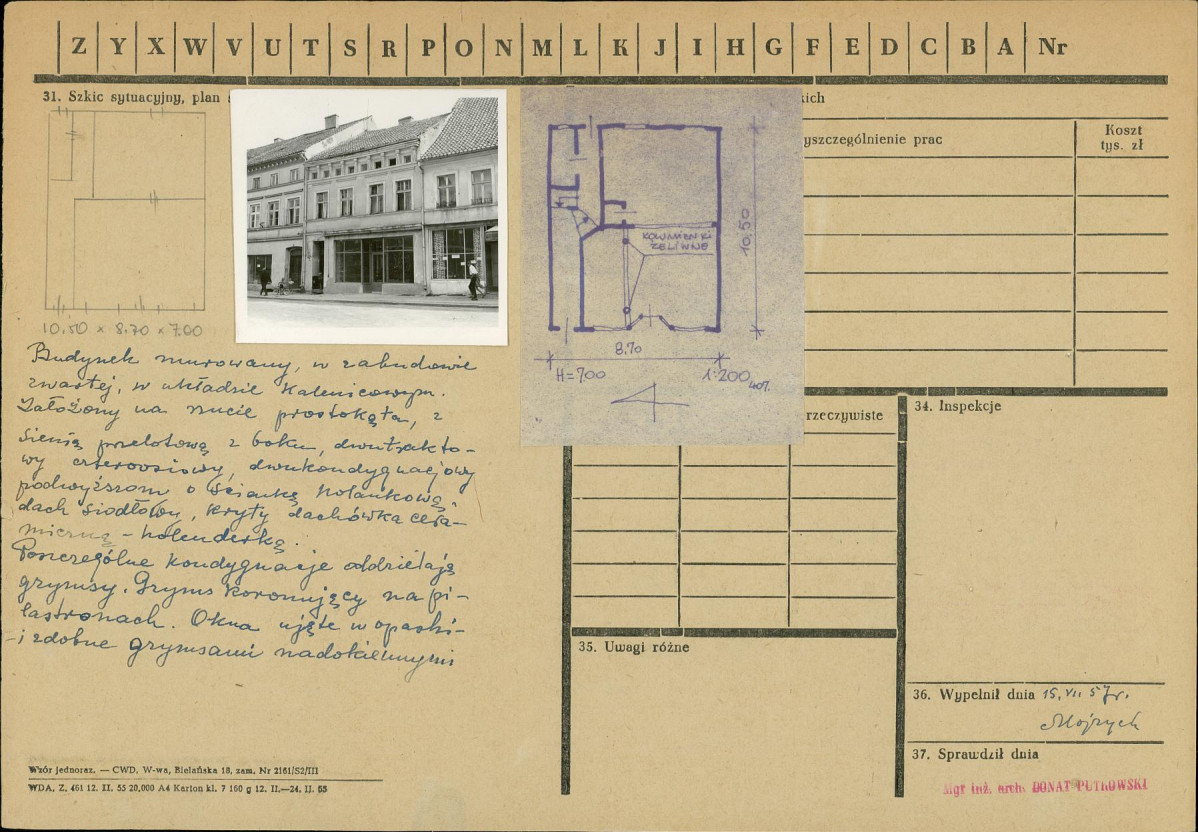 Z Y X W V U T S R P O N M L K J I H G F E D C B A Nr
31. Szkic sytuacyjny, plan
kich
yszczególnienie prac
Koszt
tys. zł
KOLUMIENKI
ŻELIWNE
10,50
8.70
H=7.00
1:200
10,50 × 8.70 × 7.00
Budynek murowany, w zabudowie
zwartej, w układzie kalenicowym.
Założony na rzucie prostokąta, z
sienią przelotową z boku, dwutrakto-
wy czteroosiowy, dwukondygnacjowy
podwyższom o ściankę kolankową,
dach siodłowy, kryty dachówka cera-
miczną - holenderką.
Poszczególne kondygnacje oddzielają
gzymsy. Gzyms koronujący na pi-
lastronach. Okna ujęte w opaski-
- i zdobne gzymsami nadokiennymi
rzeczywiste
34. Inspekcje
35. Uwagi różne
36. Wypełnił dnia 15. VII 57r.
37. Sprawdził dnia
Mgr inż. arch. DONAT PUTKOWSKI
Wzór jednoraz. — CWD, W-wa, Bielańska 18, zam. Nr 2161/S2/III
WDA. Z. 461 12. II. 55 20.000 A4 Karton kl. 7 160 g 12. II.—24. II. 55